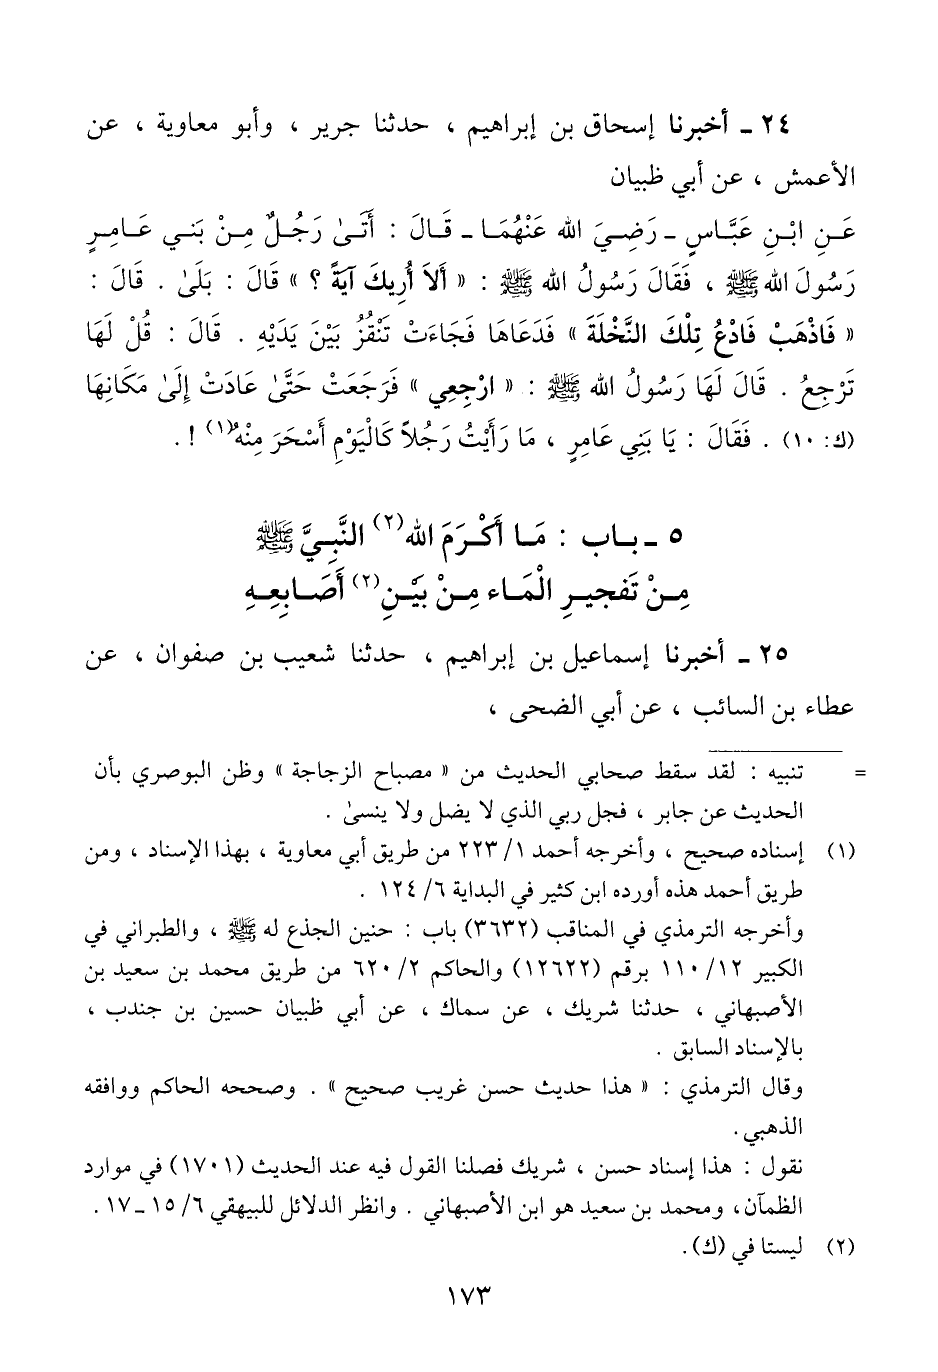 ٢٤ ـ أخبرنا إسحاق بن إبراهيم ، حدثنا جرير ، وأبو معاوية ، عن
الأعمش ، عن أبي ظبيان
عَـنِ ابْـنِ عَبَّـاسٍ ـ رَضِـيَ اللهُ عَنْهُمَـا ـ قَـالَ : أَتَـىٰ رَجُـلٌ مِـنْ بَنِـي عَـامِـرٍ
رَسُولَ اللهِ ﷺ ، فَقَالَ رَسُولُ اللهِ ﷺ : « أَلاَ أُرِيكَ آيَةً ؟ » قَالَ : بَلَىٰ . قَالَ :
« فَاذْهَبْ فَادْعُ تِلْكَ النَّخْلَةَ » فَدَعَاهَا فَجَاءَتْ تَنْقُزُ بَيْنَ يَدَيْهِ . قَالَ : قُلْ لَهَا
تَرْجِعُ . قَالَ لَهَا رَسُولُ اللهِ ﷺ : « ارْجِعِي » فَرَجَعَتْ حَتَّىٰ عَادَتْ إِلَىٰ مَكَانِهَا
(ك: ١٠) . فَقَالَ : يَا بَنِي عَامِرٍ ، مَا رَأَيْتُ رَجُلاً كَالْيَوْمِ أَسْحَرَ مِنْهُ(١) ! .
٥ ـ بـاب : مَـا أَكْـرَمَ اللهُ(٢) النَّبِـيَّ ﷺ
مِـنْ تَفجيـرِ الْمَـاء مِـنْ بَيْـنِ(٢) أَصَـابِعِـهِ
٢٥ ـ أخبرنا إسماعيل بن إبراهيم ، حدثنا شعيب بن صفوان ، عن
عطاء بن السائب ، عن أبي الضحى ،
= تنبيه : لقد سقط صحابي الحديث من « مصباح الزجاجة » وظن البوصري بأن
الحديث عن جابر ، فجل ربي الذي لا يضل ولا ينسىٰ .
(١) إسناده صحيح ، وأخرجه أحمد ١/ ٢٢٣ من طريق أبي معاوية ، بهذا الإسناد ، ومن
طريق أحمد هذه أورده ابن كثير في البداية ٦/ ١٢٤ .
وأخرجه الترمذي في المناقب (٣٦٣٢) باب : حنين الجذع له ﷺ ، والطبراني في
الكبير ١٢/ ١١٠ برقم (١٢٦٢٢) والحاكم ٢/ ٦٢٠ من طريق محمد بن سعيد بن
الأصبهاني ، حدثنا شريك ، عن سماك ، عن أبي ظبيان حسين بن جندب ،
بالإسناد السابق .
وقال الترمذي : « هذا حديث حسن غريب صحيح » . وصححه الحاكم ووافقه
الذهبي .
نقول : هذا إسناد حسن ، شريك فصلنا القول فيه عند الحديث (١٧٠١) في موارد
الظمآن، ومحمد بن سعيد هو ابن الأصبهاني . وانظر الدلائل للبيهقي ٦/ ١٥ ـ ١٧ .
(٢) ليستا في (ك) .
١٧٣